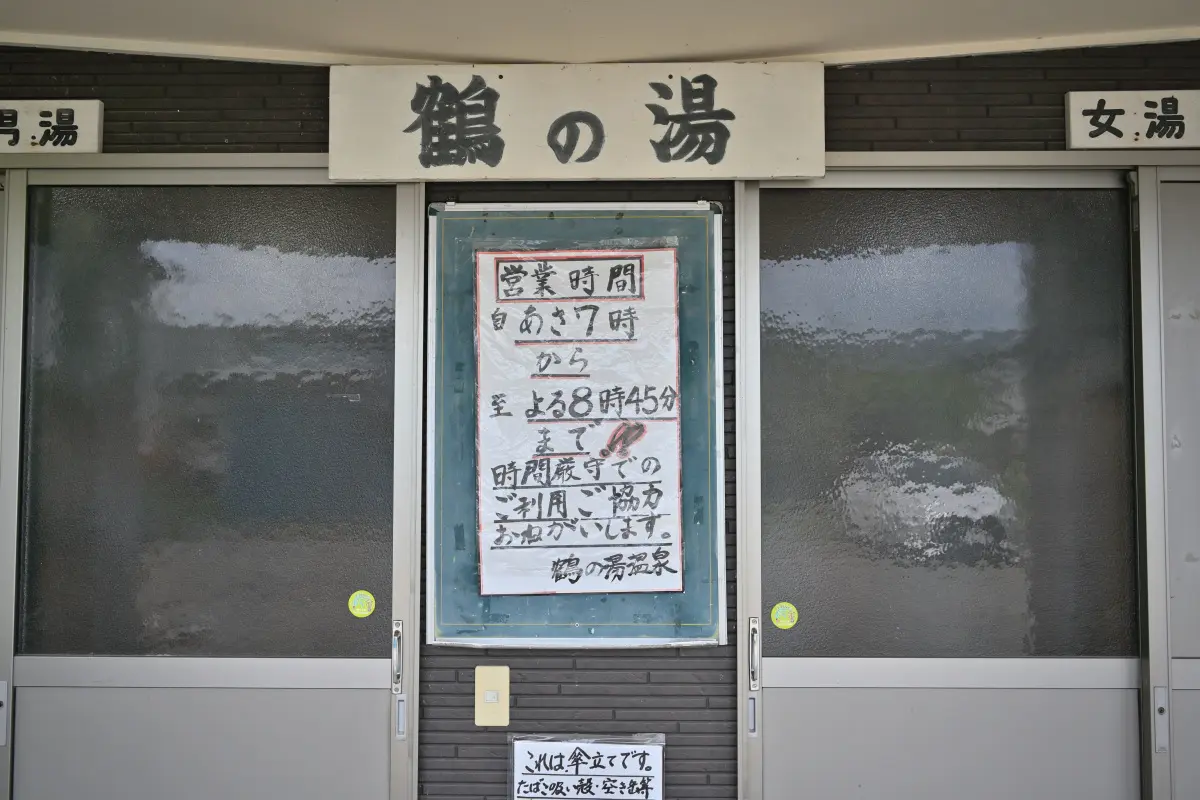 鶴の湯
男湯
女湯
営業時間
自 あさ7時
から
至 よる8時45分
まで
時間厳守での
ご利用ご協力
おねがいします。
鶴の湯温泉
これは、傘立てです。
たばこ吸い殻・空き缶等